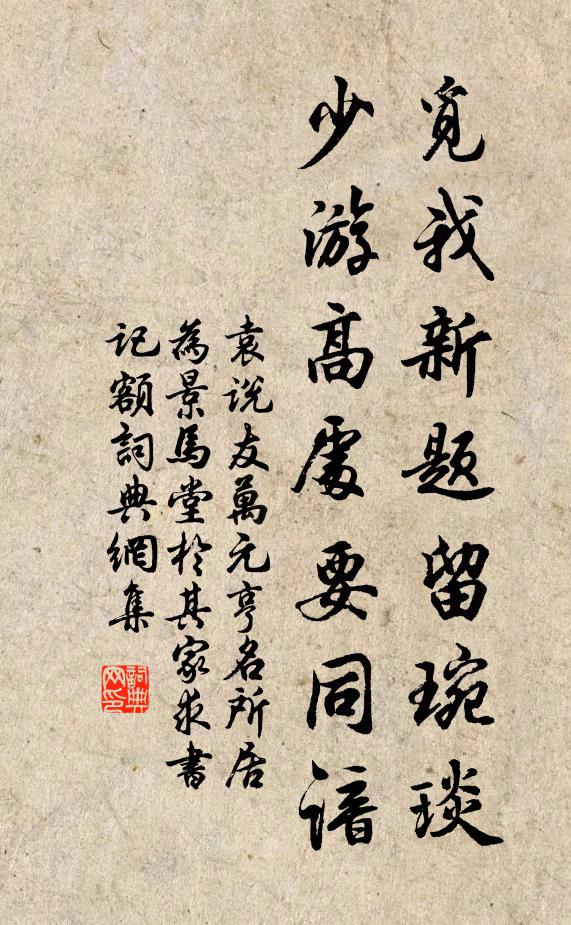 覓我新題留琬琰
少游高處要同諳
袁说友萬元亨名所居
為景馬堂於其家求書
记額詞典網集
詞典网印